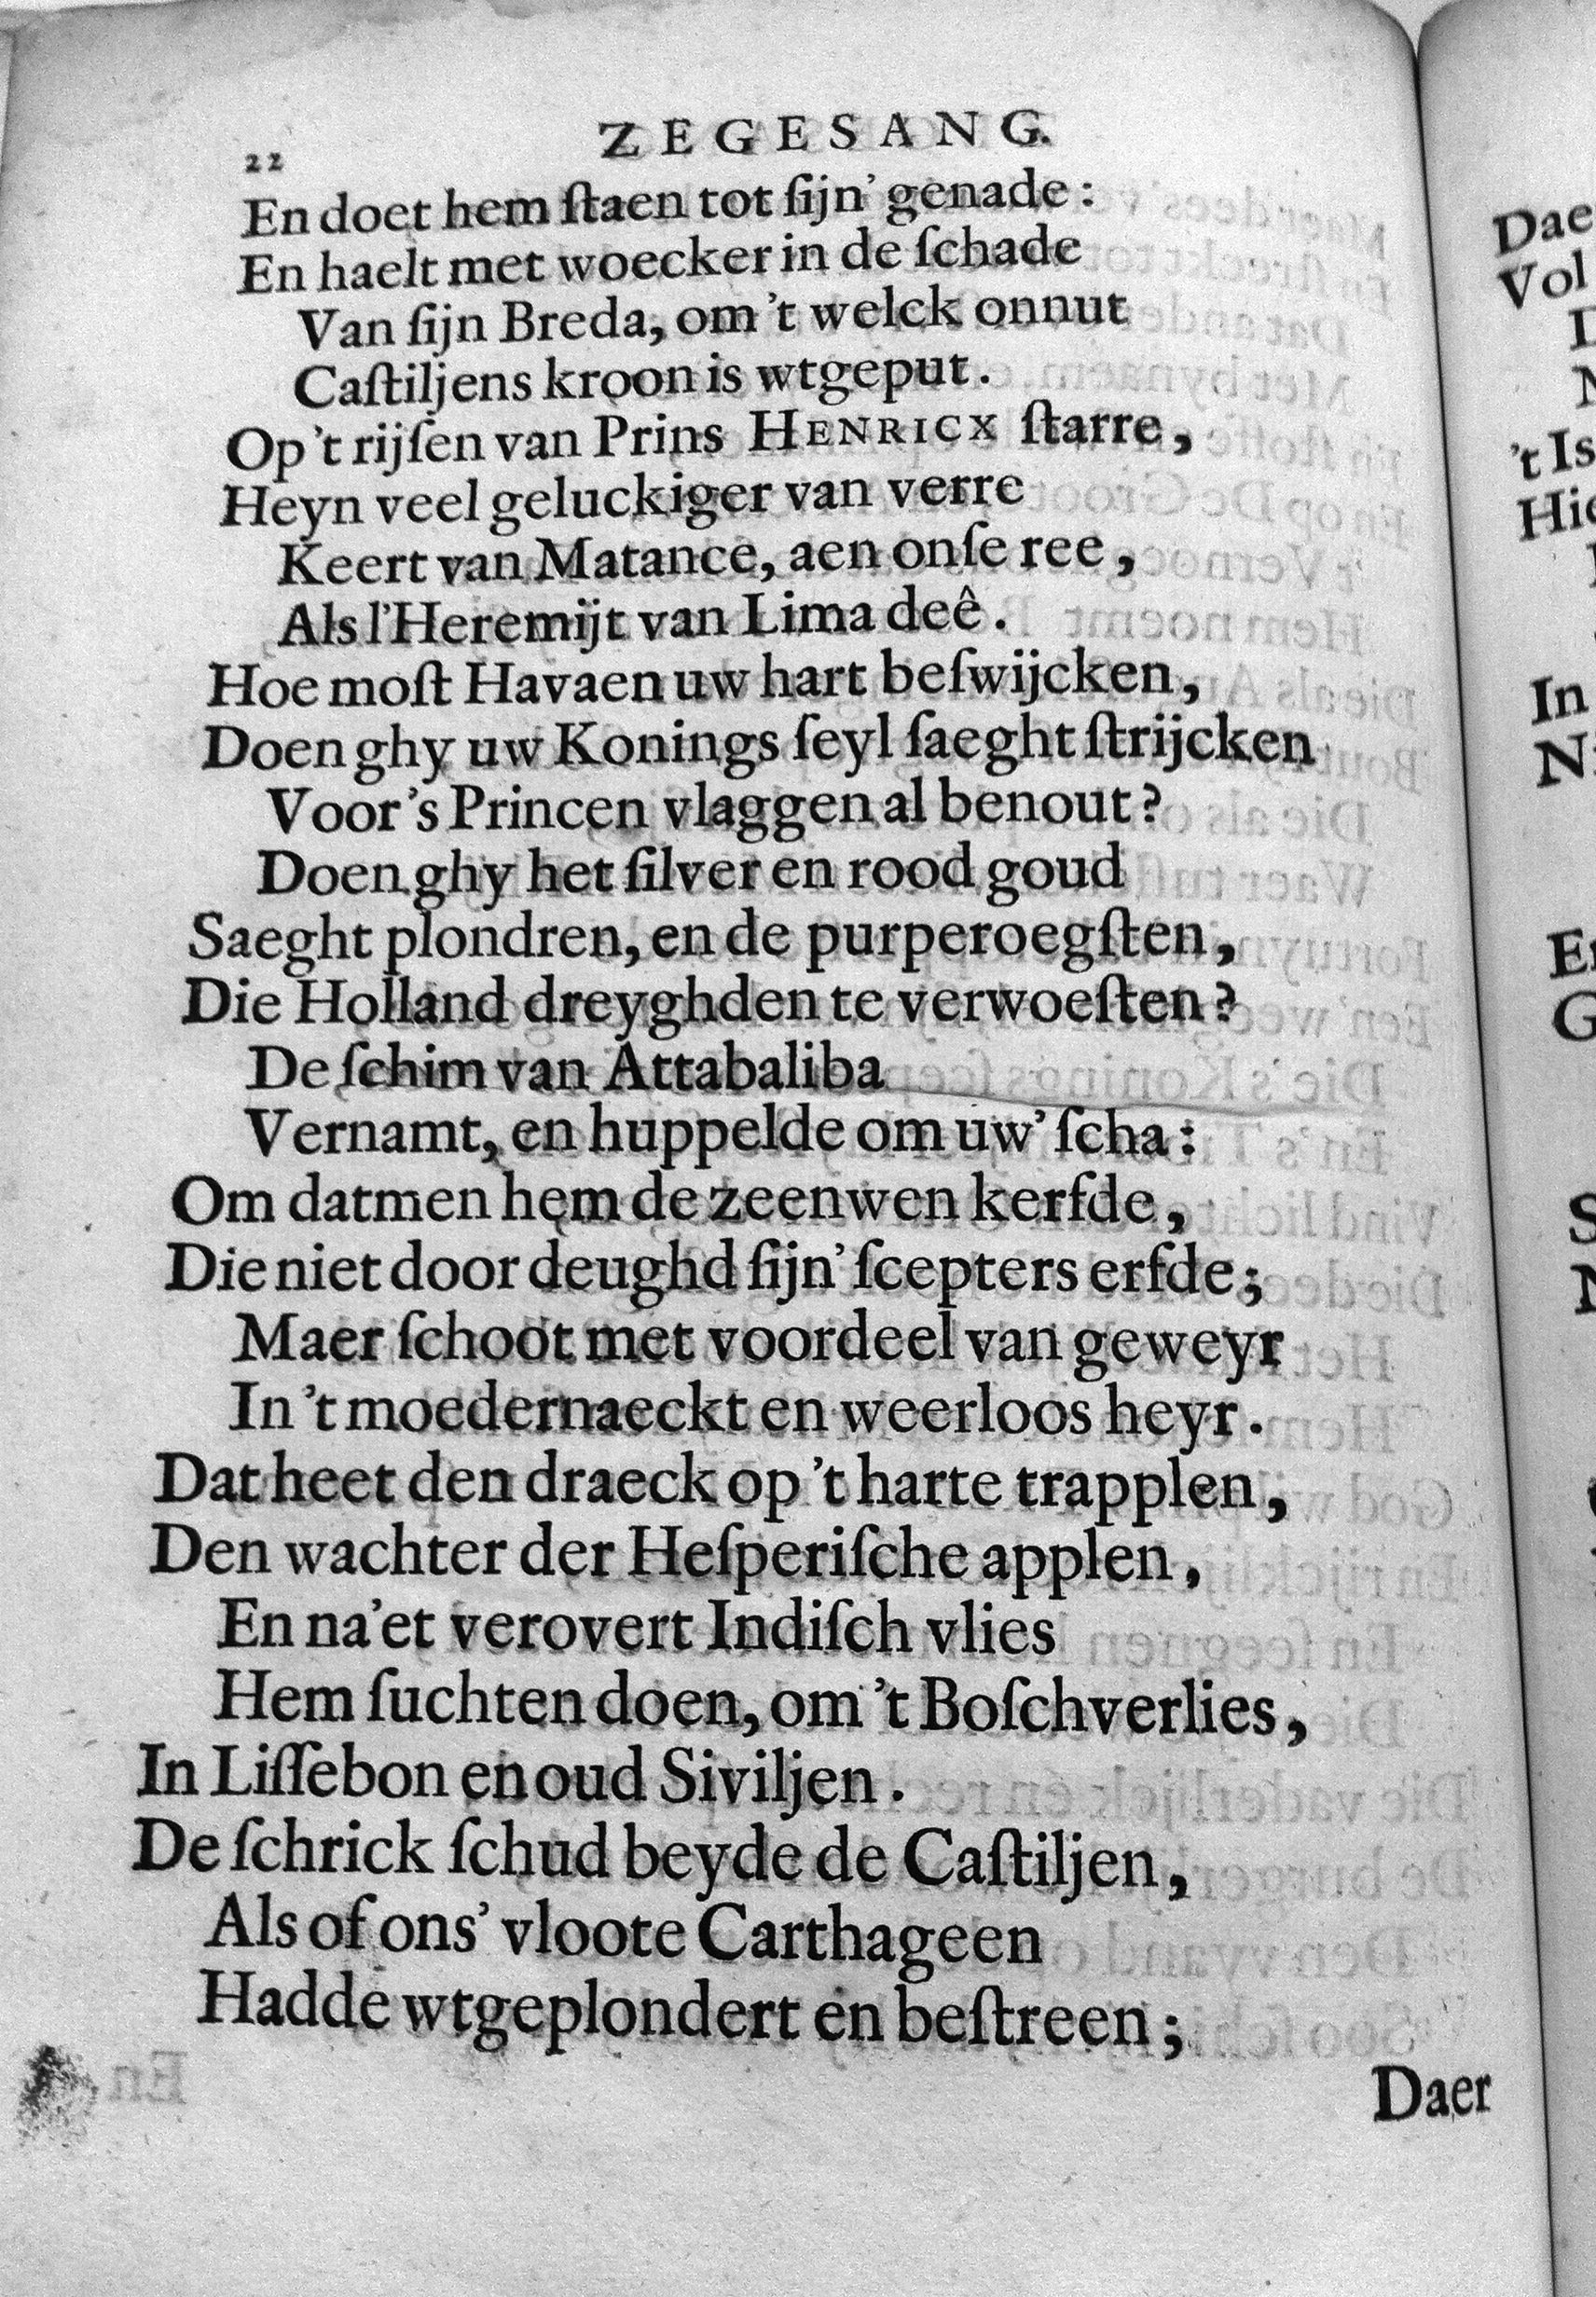 22
ZEGESANG.
En doet hem ſtaen tot ſijn’ genade:
En haelt met woecker in de ſchade
Van ſijn Breda, om ’t welck onnut
Caſtiljens kroon is wtgeput.
Op ’t rijſen van Prins HENRICX ſtarre,
Heyn veel geluckiger van verre
Keert van Matance, aen onſe ree,
Als l’Heremijt van Lima deê.
Hoe moſt Havaen uw hart beſwijcken,
Doen ghy uw Konings ſeyl ſaeght ſtrijcken
Voor ’s Princen vlaggen al benout?
Doen ghy het ſilver en rood goud
Saeght plondren, en de purperoegſten,
Die Holland dreyghden te verwoeſten?
De ſchim van Attabaliba
Vernamt, en huppelde om uw’ ſcha:
Om datmen hem de zeenwen kerfde,
Die niet door deughd ſijn’ ſcepters erfde;
Maer ſchoot met voordeel van geweyr
In ’t moedernaeckt en weerloos heyr.
Dat heet den draeck op ’t harte trapplen,
Den wachter der Heſperiſche applen,
En na’et verovert Indiſch vlies
Hem ſuchten doen, om ’t Boſchverlies,
In Liſſebon en oud Siviljen.
De ſchrick ſchud beyde de Caſtiljen,
Als of ons’ vloote Carthageen
Hadde wtgeplondert en beſtreen;
Daer
Dae
Vol
’t Is
In